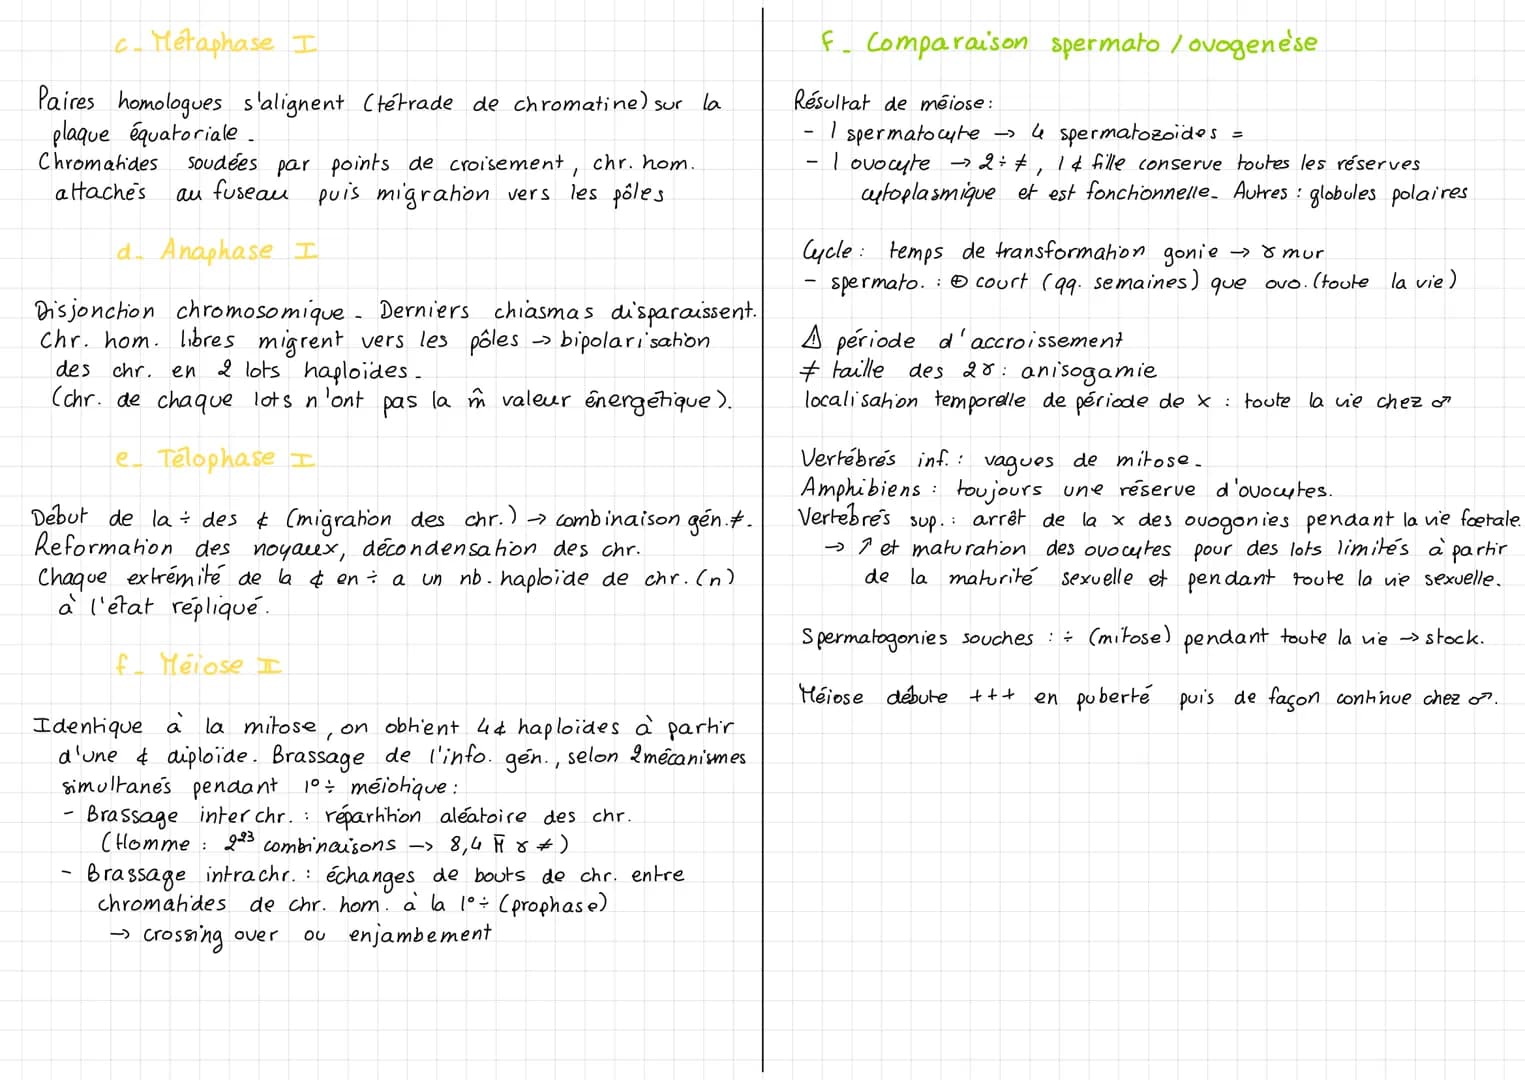 c_ Métaphase I
Paires homologues s'alignent (tétrade de chromatine) sur la
plaque équatoriale.
Chromatides soudées par points de croisement, chr. hom.
attachés au fuseau puis migration vers les pôles
d_ Anaphase I
Disjonction chromosomique. Derniers chiasmas disparaissent.
Chr. hom. libres migrent vers les pôles -> bipolarisation
des chr. en 2 lots haploïdes.
(chr. de chaque lots n'ont pas la m̂ valeur énergétique).
e_ Télophase I
Début de la ÷ des ¢ (migration des chr.) -> combinaison gén.≠.
Reformation des noyaux, décondensation des chr.
Chaque extrémité de la ¢ en ÷ a un nb. haploïde de chr. (n)
à l'état répliqué.
f_ Méiose II
Identique à la mitose, on obtient 4¢ haploïdes à partir
d'une ¢ diploïde. Brassage de l'info. gén., selon 2 mécanismes
simultanés pendant 1° ÷ méiotique :
- Brassage inter chr. : répartition aléatoire des chr.
(Homme : 2²³ combinaisons -> 8,4 M̄ ɣ ≠)
- Brassage intrachr. : échanges de bouts de chr. entre
chromatides de chr. hom. à la 1° ÷ (prophase)
-> crossing over ou enjambement
f_ Comparaison spermato / ovogenèse
Résultat de méiose :
- 1 spermatocyte -> 4 spermatozoïdes =
- 1 ovocyte -> 2 ÷ ≠, 1 ¢ fille conserve toutes les réserves
cytoplasmique et est fonctionnelle. Autres : globules polaires
Cycle : temps de transformation gonie -> ɣ mur
- spermato. : ⊕ court (qq. semaines) que ovo. (toute la vie)
⚠ période d'accroissement
≠ taille des 2ɣ : anisogamie
localisation temporelle de période de x : toute la vie chez ♂
Vertébrés inf. : vagues de mitose.
Amphibiens : toujours une réserve d'ovocytes.
Vertébrés sup. : arrêt de la x des ovogonies pendant la vie fœtale.
-> ↗ et maturation des ovocytes pour des lots limités à partir
de la maturité sexuelle et pendant toute la vie sexuelle.
Spermatogonies souches : ÷ (mitose) pendant toute la vie -> stock.
Méiose débute +++ en puberté puis de façon continue chez ♂.